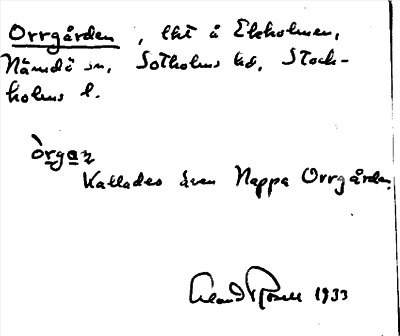 Orrgården, lht å Ekholmen,
Nämdö sn, Sotholms hd, Stock-
holms l.
Kallades även Nappa Orrgården.
1933